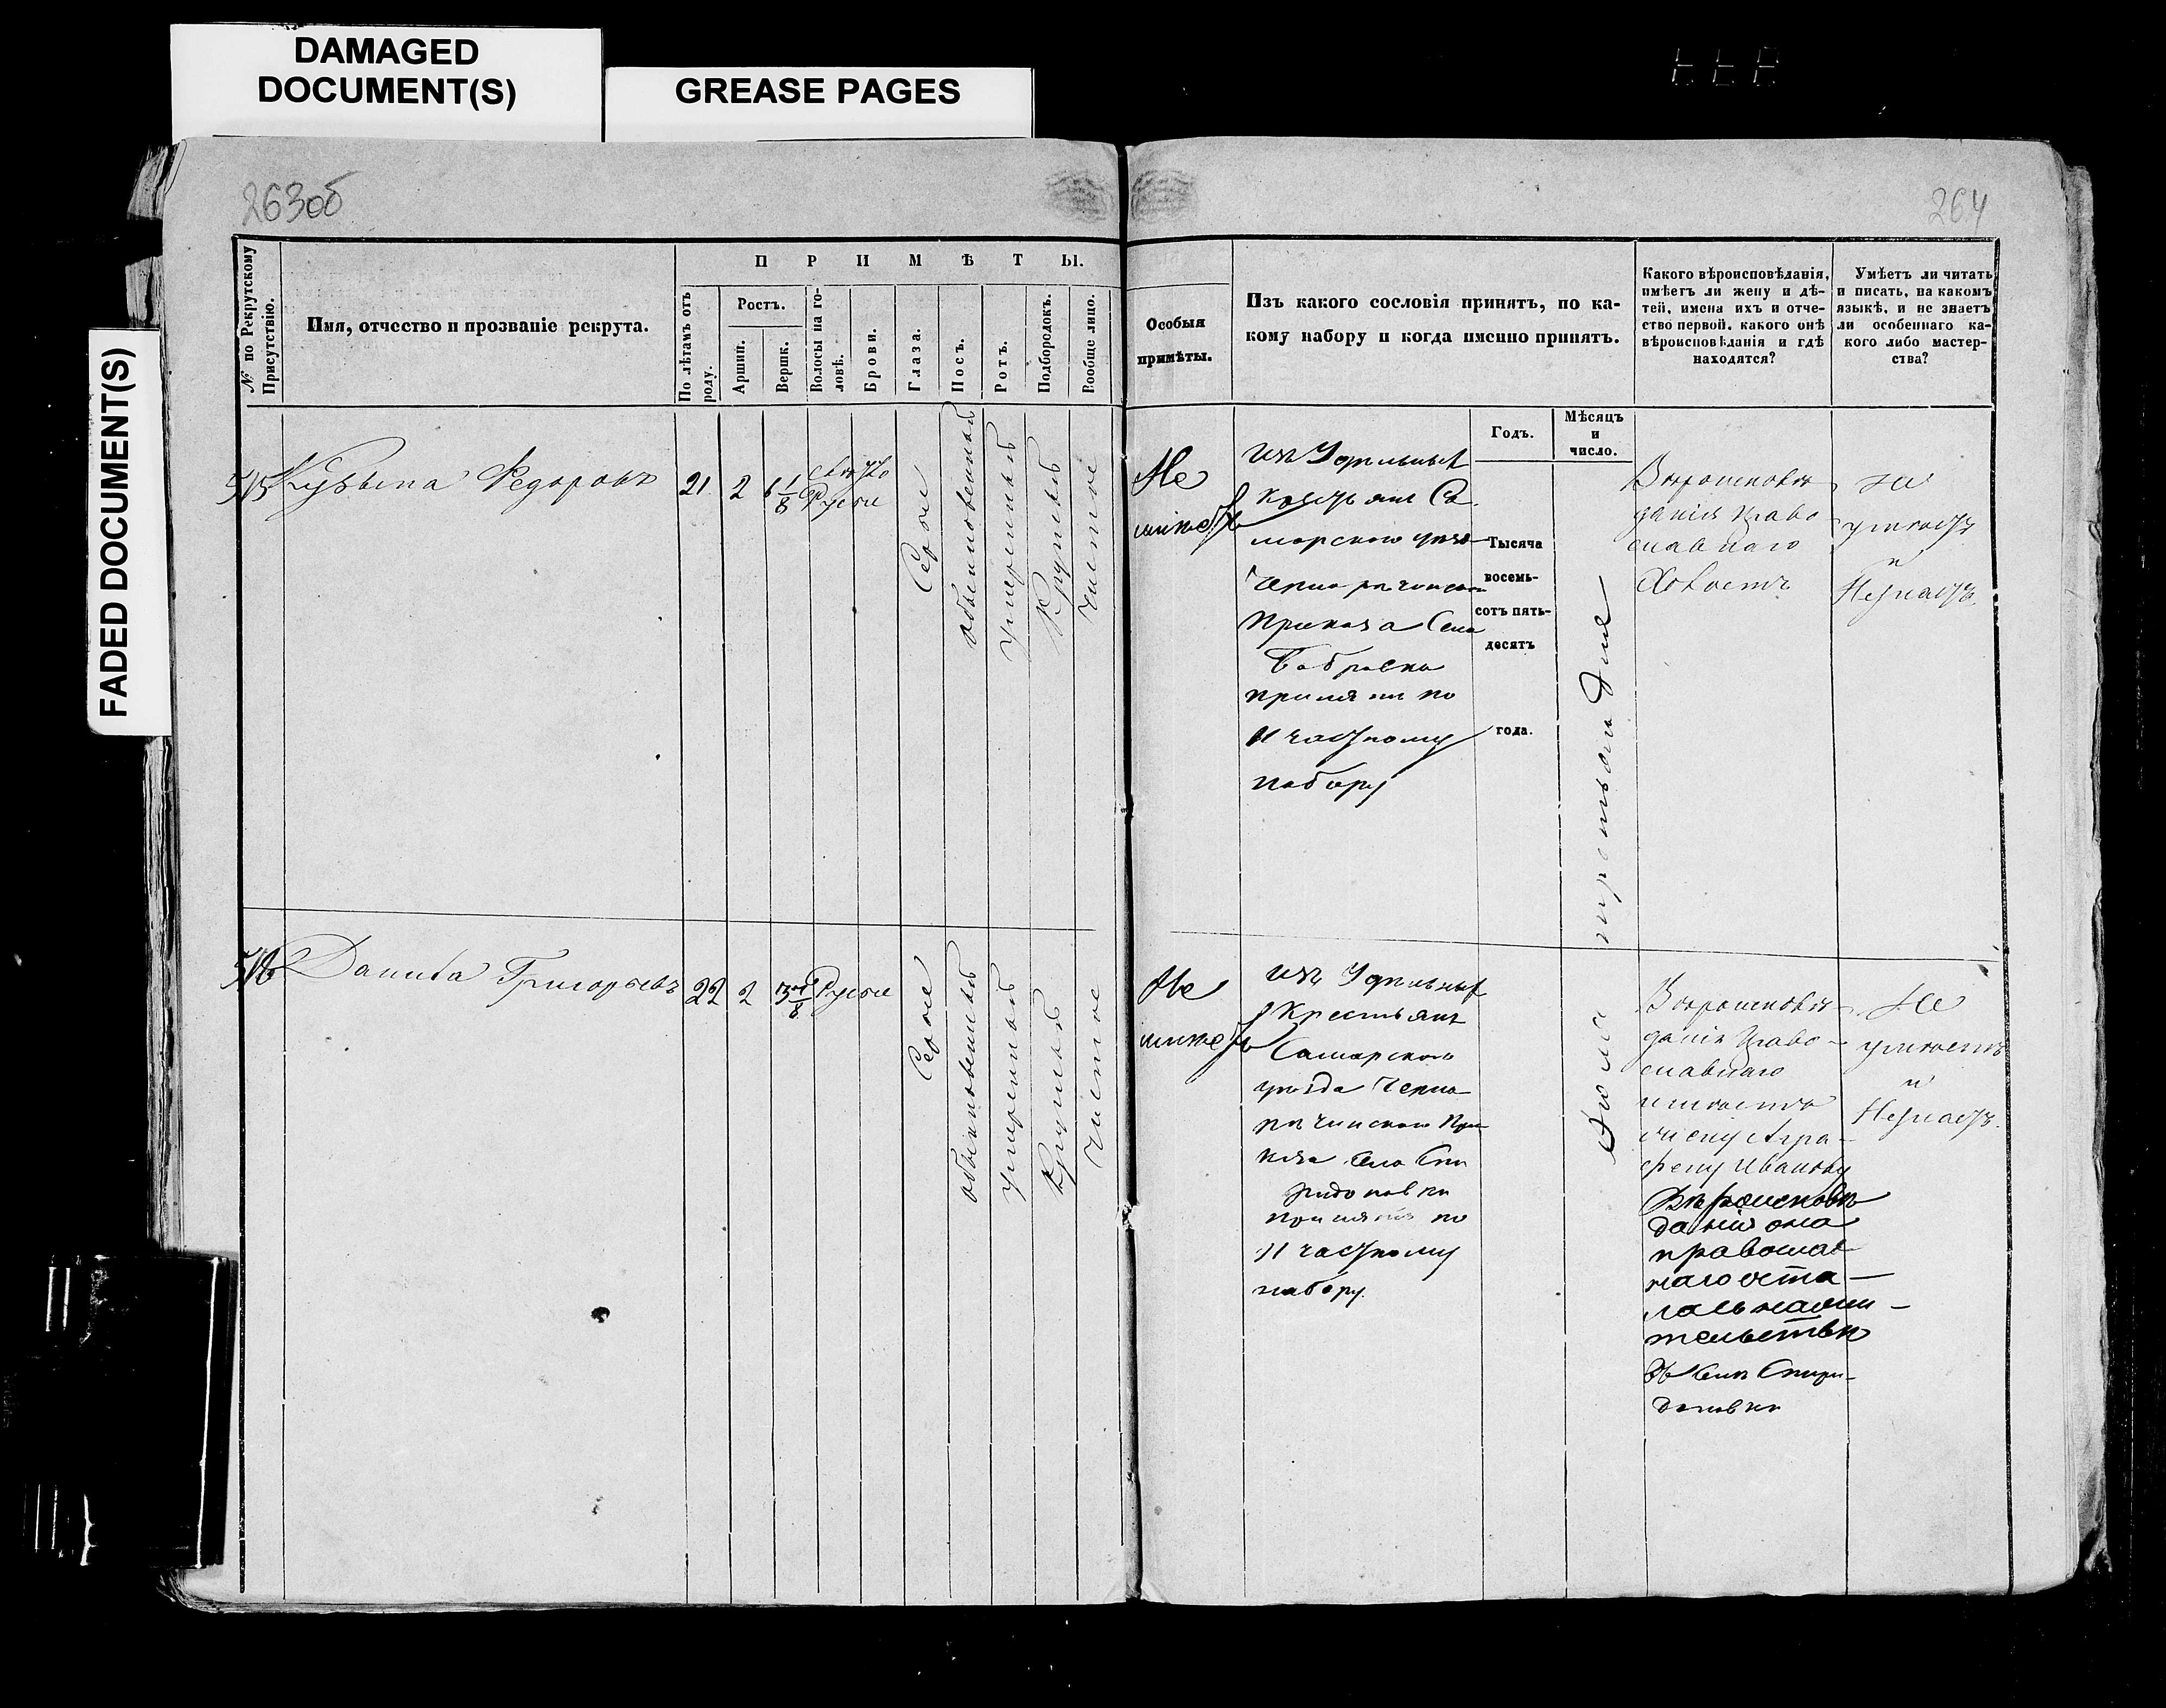 DAMAGED
DOCUMENT(S)
GREASE PAGES
FADED DOCUMENT(S)
263об
264
№ по Рекрутскому
Присутствію.
Имя, отчество и прозваніе рекрута.
П Р И М Ѣ Т Ы.
По лѣтамъ отъ
роду.
Ростъ.
Аршин.
Вершк.
Волосы на го-
ловѣ.
Брови.
Глаза.
Носъ.
Ротъ.
Подбородокъ.
Вообще лицо.
Особыя
примѣты.
Изъ какого сословія принятъ, по ка-
кому набору и когда именно принятъ.
Какого вѣроисповѣданія,
имѣетъ ли жену и дѣ-
тей, имена ихъ и отче-
ство первой, какого онѣ
вѣроисповѣданія и гдѣ
находятся?
Умѣетъ ли читать
и писать, на какомъ
языкѣ, и не знаетъ
ли особеннаго ка-
кого либо мастер-
ства?
Годъ.
Мѣсяцъ
и
число.
515
Кузьма Федоровъ
21
2
6 1/8
Свѣтло
Русые
Серые
обыкновенный
умеренный
Круглый
Чистое
Не
имѣетъ
изъ Удельныхъ
Крестьянъ Са
марского уѣзда
Чернореченскаго
Приказа Села
Бобровки
принятъ по
II частному
набору
Тысяча
восемь-
сотъ пять-
десятъ
года.
третьяго дня
Вѣроисповѣ
данія Право
славнаго
Холостъ
не
умѣетъ
и
Незнаетъ.
516
Данила Григорьевъ
22
2
3 1/8
Русые
Серые
обыкновенный
умеренный
Круглый
Чистое
Не
имѣетъ
изъ Удельныхъ
Крестьянъ
Самарского
уѣзда Черно
рѣчинского При
каза Села Спи
ридоновки
принятъ по
II частному
набору.
Июля
Вѣроисповѣ
данія Право
славнаго
имѣетъ
жену Агра
фену Иванову
Вѣроисповѣ
данія она
православ
наго оста
лась на жи
тельствѣ
въ Селѣ Спири
доновки
Не
умѣетъ
и
Незнаетъ.